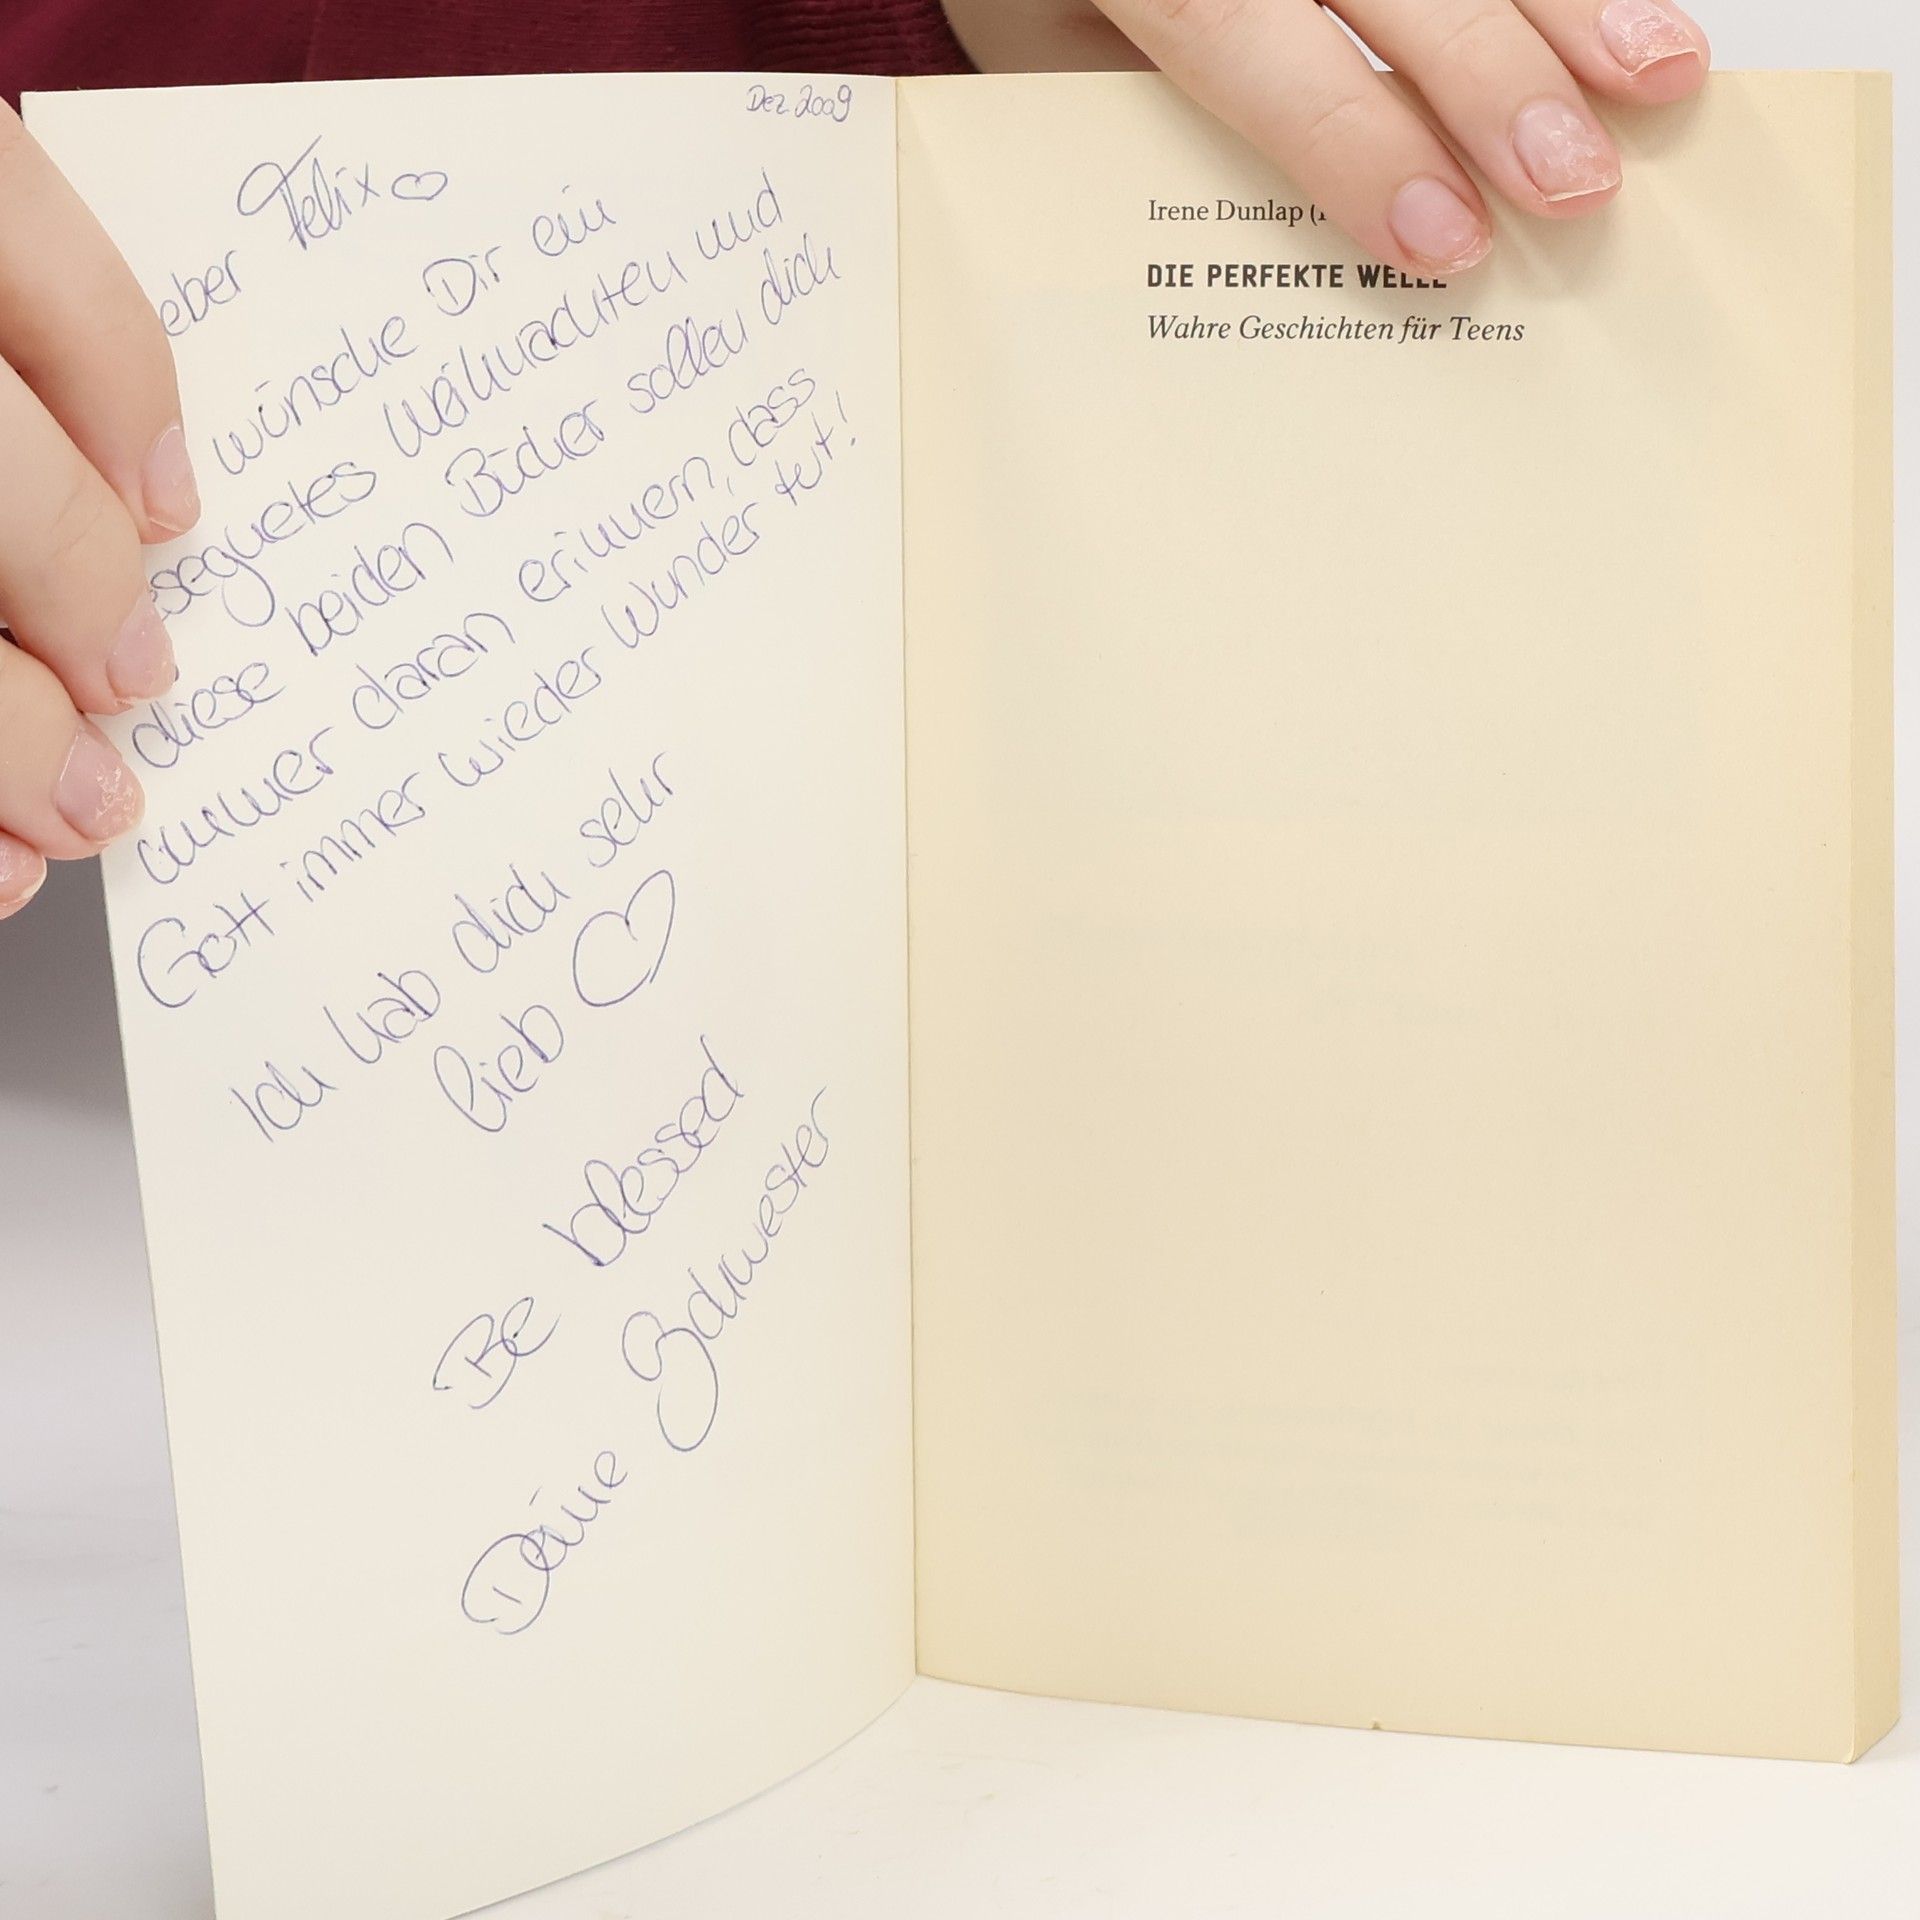 Dez 2009
eber Felix ♡
wünsche Dir ein
esegnetes Weihnachten und
diese beiden Bücher sollen dich
immer daran erinnern, dass
Gott immer wieder Wunder tut!
Ich hab dich sehr
lieb ♡
Be blessed
Deine Schwester
Irene Dunlap (
DIE PERFEKTE WELLE
Wahre Geschichten für Teens